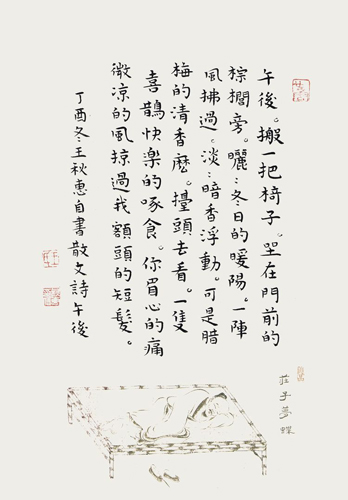 午後。搬一把椅子。坐在門前的
棕櫚旁。曬曬冬日的暖陽。一陣
風拂過。淡淡暗香浮動。可是臘
梅的清香麽。擡頭去看。一隻
喜鵲快樂的啄食。你眉心的痛
微凉的風掠過我額頭的短髮。
丁酉冬王秋惠自書散文詩午後
莊子夢蝶